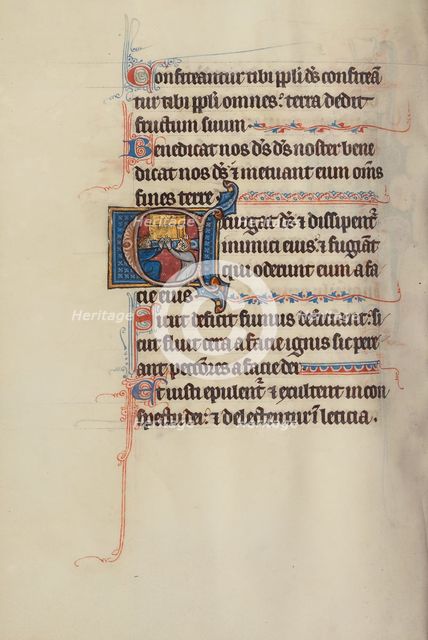 Confiteantur tibi ppl̄i ds̄ confiteā
tur tibi ppl̄i omnes: terra dedit
fructum suum.
Benedicat nos ds̄ ds̄ noster bene
dicat nos ds̄ ⁊ metuant eum om̄s
fines terre.
Exurgat ds̄ ⁊ dissipent᷑
inimici eius: ⁊ fugiāt
qui oderunt eum a fa
cie eius.
Sicut deficit fumus deficiant: si
cut fluit cera a facie ignis sic pere
ant pecc̄ores a facie dei
Et iusti epulent᷑ ⁊ exultent in con
spectu dei: ⁊ delectentur ī leticia.
Heritage Images
Heritage Images
Heritage Images
Heritage Images
Heritage Images